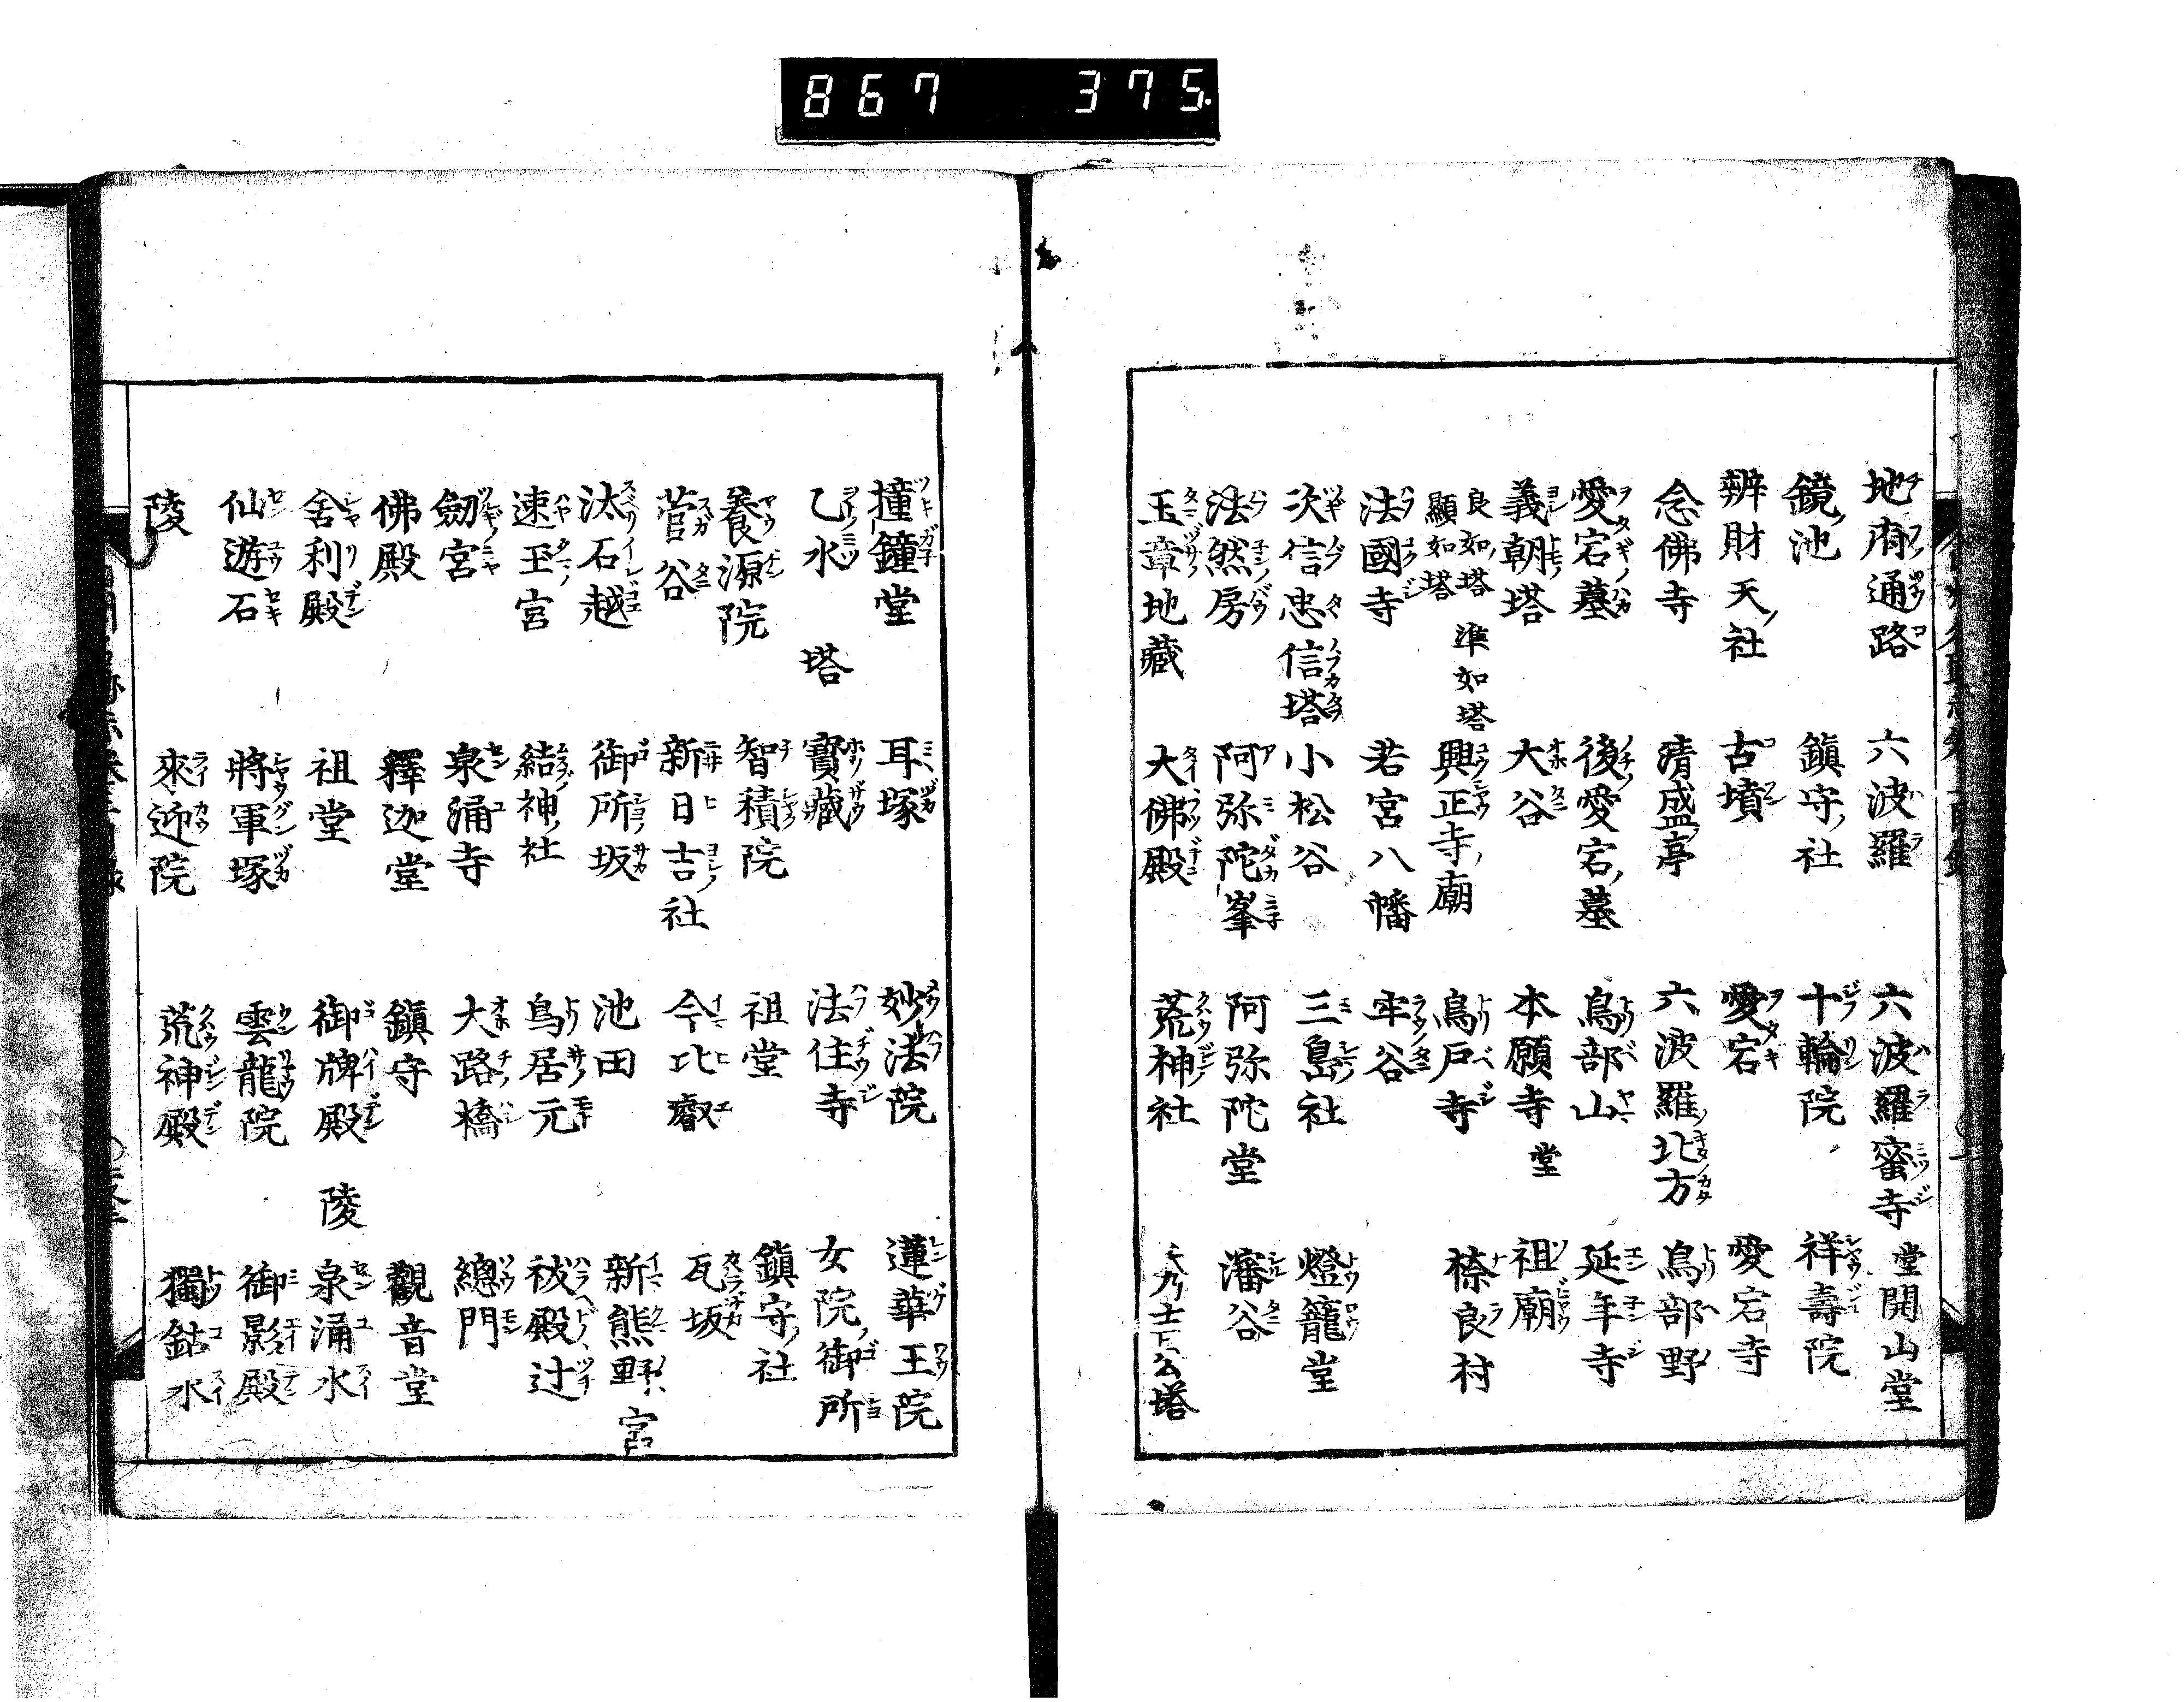 867 375.
地府通路 六波羅 六波羅蜜寺 堂 開山堂
鏡池 鎮守社 十輪院 祥壽院
辨財天社 古墳 愛宕 愛宕寺
念佛寺 清盛亭 六波羅北方 鳥部野
愛宕墓 後愛宕墓 鳥部山 延年寺
義朝塔 大谷 本願寺 堂 祖廟
良如塔 準如塔
顯如塔 興正寺廟 鳥戸寺 㮈良村
法國寺 若宮八幡 牢谷
次信忠信塔 小松谷 三島社 燈籠堂
法然房 阿弥陀峯 阿弥陀堂 瀋谷
玉章地藏 大佛殿 荒神社 公塔
撞鐘堂 耳塚 妙法院 蓮華王院
乙水 塔 寶藏 法住寺 女院御所
養源院 智積院 祖堂 鎮守社
菅谷 新日吉社 今比叡 瓦坂
汰石越 御所坂 池田 新熊野 宮
速玉宮 結神社 鳥居元 祓殿辻
劔宮 泉涌寺 大路橋 總門
佛殿 釋迦堂 鎮守 觀音堂
舍利殿 祖堂 御牌殿 陵 泉涌水
仙遊石 將軍塚 雲龍院 御影殿
陵 來迎院 荒神殿 獨鈷水